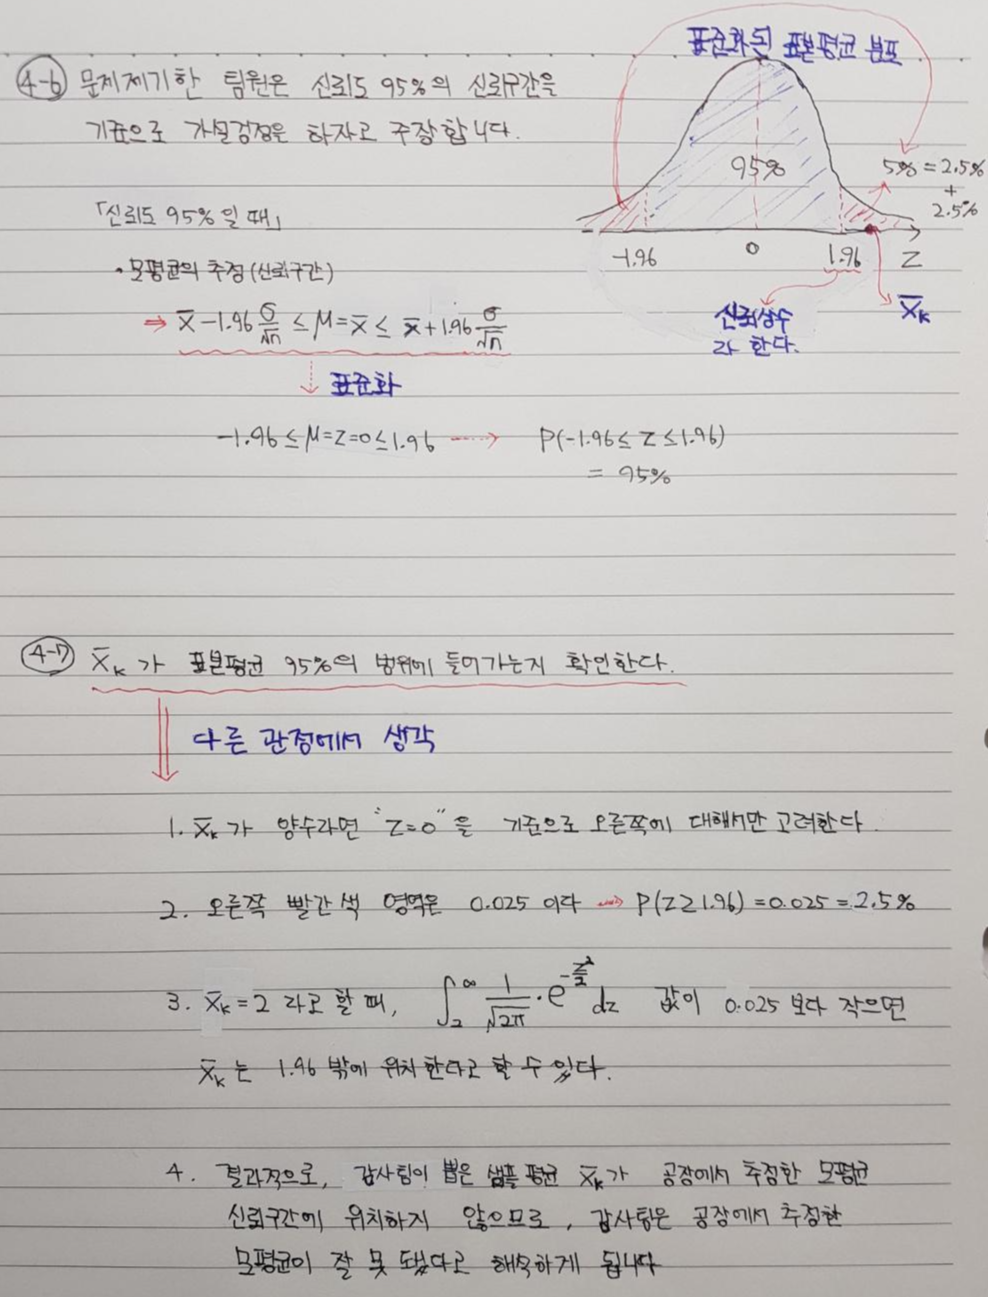 표준화된 표본평균 분포
4-6 문제제기한 팀원은 신뢰도 95%의 신뢰구간을
기준으로 가설검정은 하자고 주장합니다.
95%
5% = 2.5%
+
2.5%
-1.96 0 1.96 Z
X̄ₖ
신뢰상수
라 한다.
「신뢰도 95% 일 때」
• 모평균의 추정(신뢰구간)
⇒ X̄ - 1.96 σ/√n ≤ M = X̄ ≤ X̄ + 1.96 σ/√n
표준화
-1.96 ≤ M = Z = 0 ≤ 1.96 → P(-1.96 ≤ Z ≤ 1.96)
= 95%
4-7 X̄ₖ 가 표본평균 95%의 범위에 들어가는지 확인한다.
다른 관점에서 생각
1. X̄ₖ 가 양수라면 "Z=0" 을 기준으로 오른쪽에 대해서만 고려한다.
2. 오른쪽 빨간색 영역은 0.025 이다 → P(Z ≥ 1.96) = 0.025 = 2.5%
3. X̄ₖ = 2 라고 할 때, ∫₂^∞ 1/√2π · e^(-z²/2) dz 값이 0.025 보다 작으면
X̄ₖ 는 1.96 밖에 위치한다고 할 수 있다.
4. 결과적으로, 감사팀이 뽑은 샘플 평균 X̄ₖ가 공장에서 추정한 모평균
신뢰구간에 위치하지 않으므로, 감사팀은 공장에서 추정한
모평균이 잘 못 됐다고 해석하게 됩니다